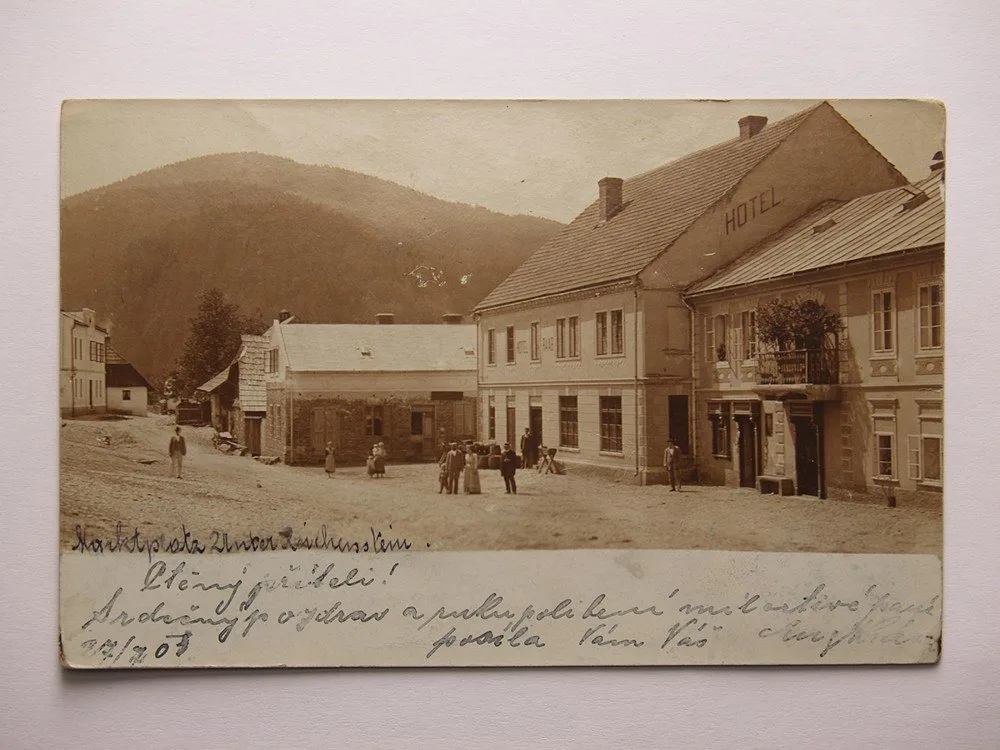 HOTEL
HOTEL
Marktplatz Unter Reichenstein.
Ctěný příteli!
Srdečný pozdrav a rukupolibení milostivé paní
posílá Vám Váš
27/7 03